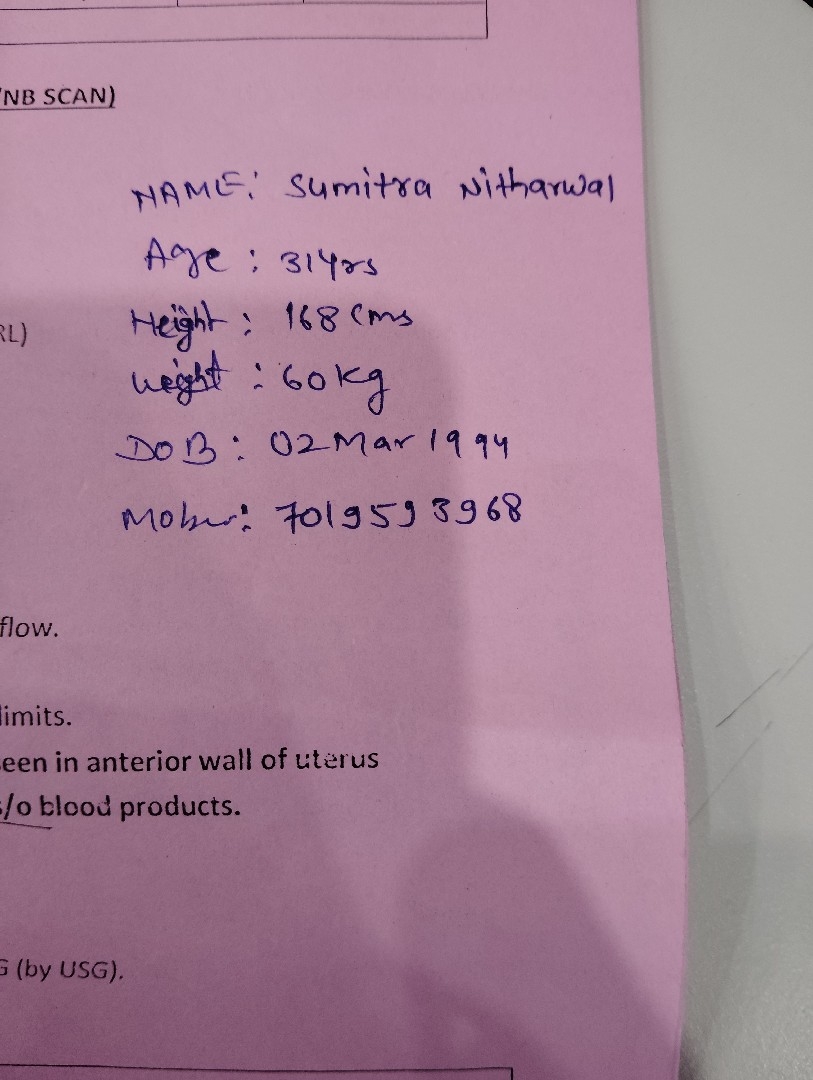 NB SCAN)
NAME: Sumitra Nitharwal
Age : 31Yrs
RL)
Height : 168 Cms
Weight : 60kg
DOB : 02 Mar 1994
7019593968
flow.
limits.
een in anterior wall of uterus
s/o blood products.
G (by USG).